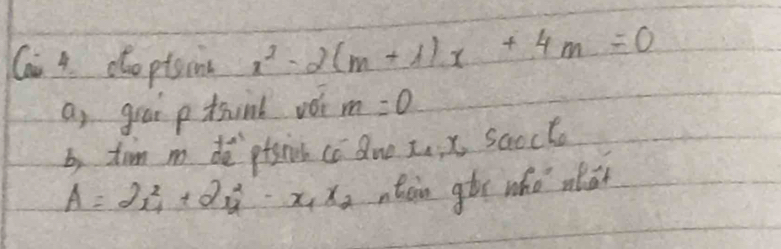 Câu 4. cho ptrình x² - 2(m + 1)x + 4m = 0
a, giải p trình với m = 0
b, tìm m để ptrình có 2no x₁, x₂ sao cho
A = 2x₁² + 2x₂² - x₁x₂ nhận gtrị nhỏ nhất